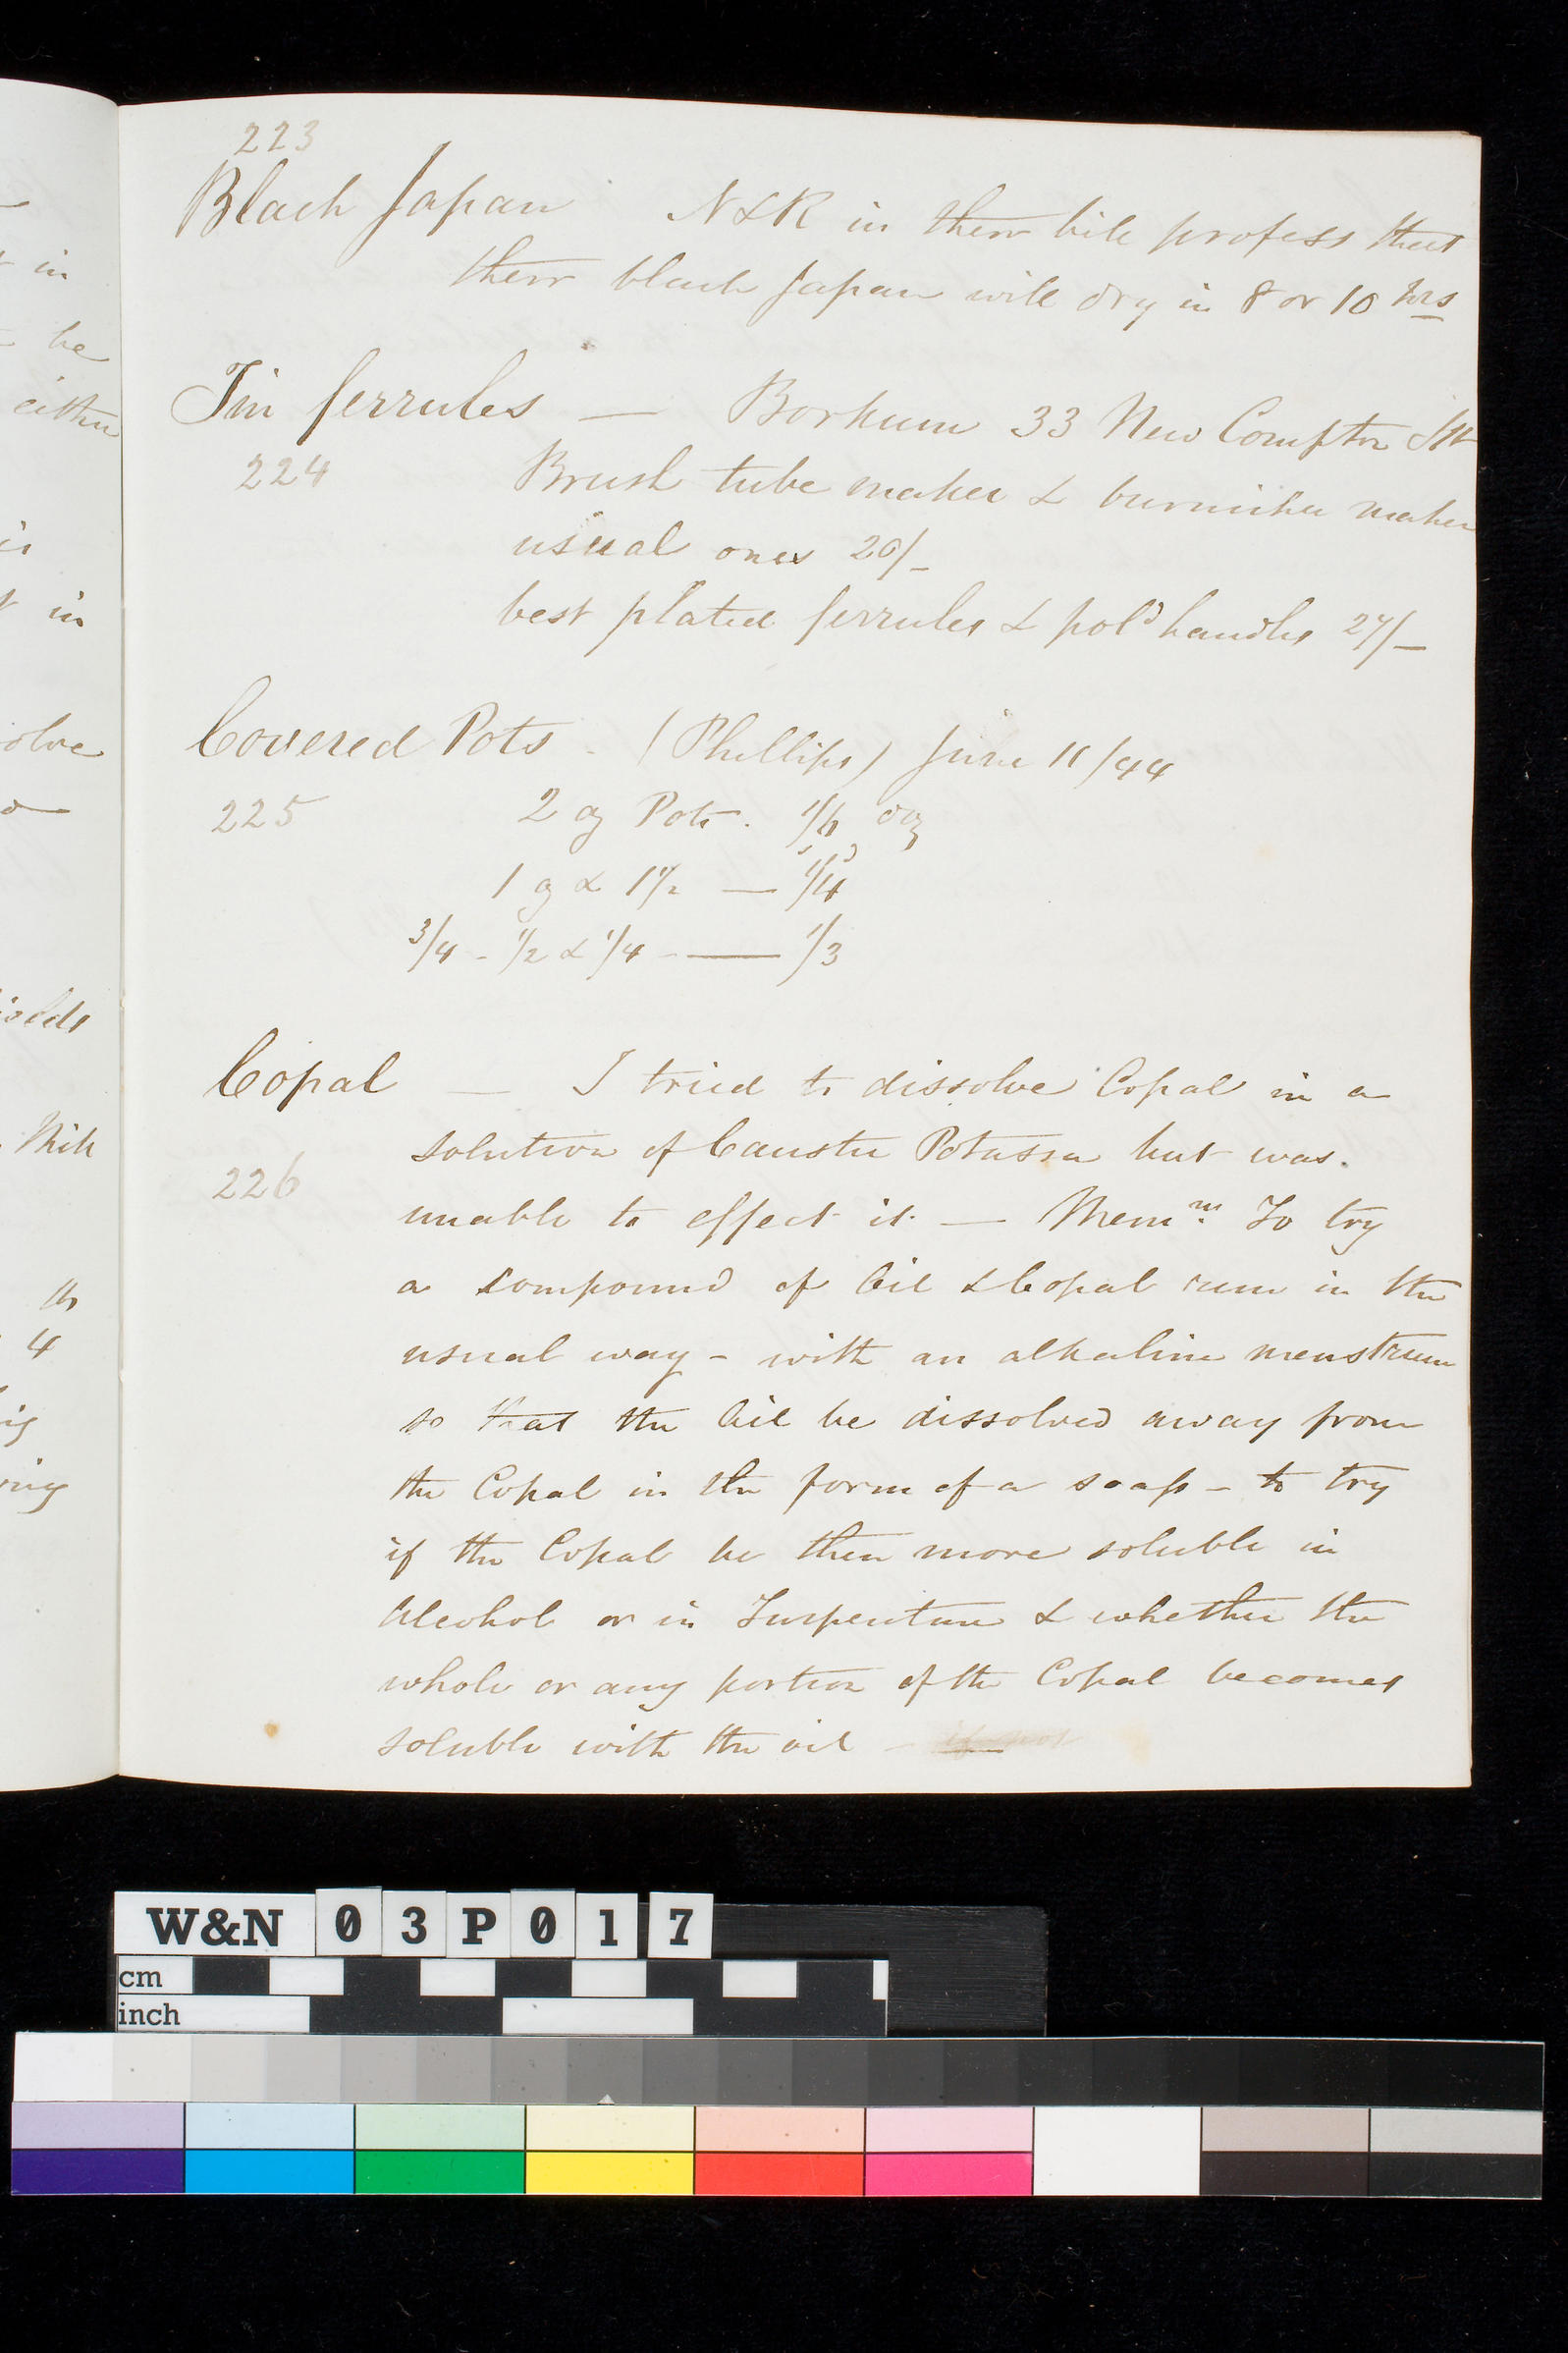 223
Black Japan N&R in their bill profess that
their black Japan will dry in 8 or 10 hrs
Tin ferrules — Borkum 33 New Compton Stt
224 Brush tube maker & burnisher maker
usual ones 20/-
best plated ferrules & pold handles 27/-
Covered Pots - (Phillips) June 11/44
225 2 oz Pots. 1/6 doz
1 oz & 1 1/2 — 1/4
3/4 - 1/2 & 1/4 - — 1/3
Copal — I tried to dissolve Copal in a
solution of Caustic Potassa but was
226
unable to effect it — Memm. To try
a compound of Oil & Copal run in the
usual way - with an alkaline menstruum
so that the Oil be dissolved away from
the Copal in the form of a soap - to try
if the Copal be then more soluble in
Alcohol or in Turpentine & whether the
whole or any portion of the Copal becomes
soluble with the oil -
in
be
either
is
in
olve
olds
Milk
4
W&N 03P017
cm
inch